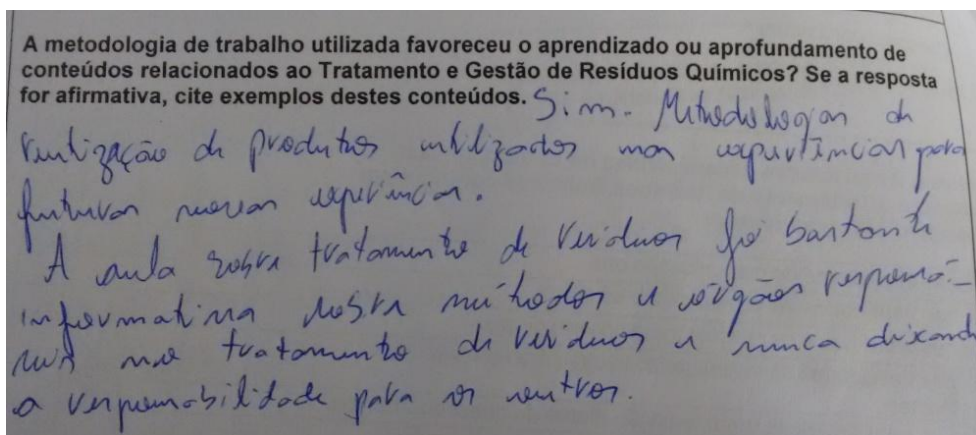 A metodologia de trabalho utilizada favoreceu o aprendizado ou aprofundamento de
conteúdos relacionados ao Tratamento e Gestão de Resíduos Químicos? Se a resposta
for afirmativa, cite exemplos destes conteúdos. Sim. Metodologias de
reutilização de produtos utilizados nas experiências para
futuras novas experiências.
A aula sobre tratamento de resíduos foi bastante
informativa sobre métodos e órgãos responsá-
veis no tratamento de resíduos e nunca deixando
a responsabilidade para os outros.